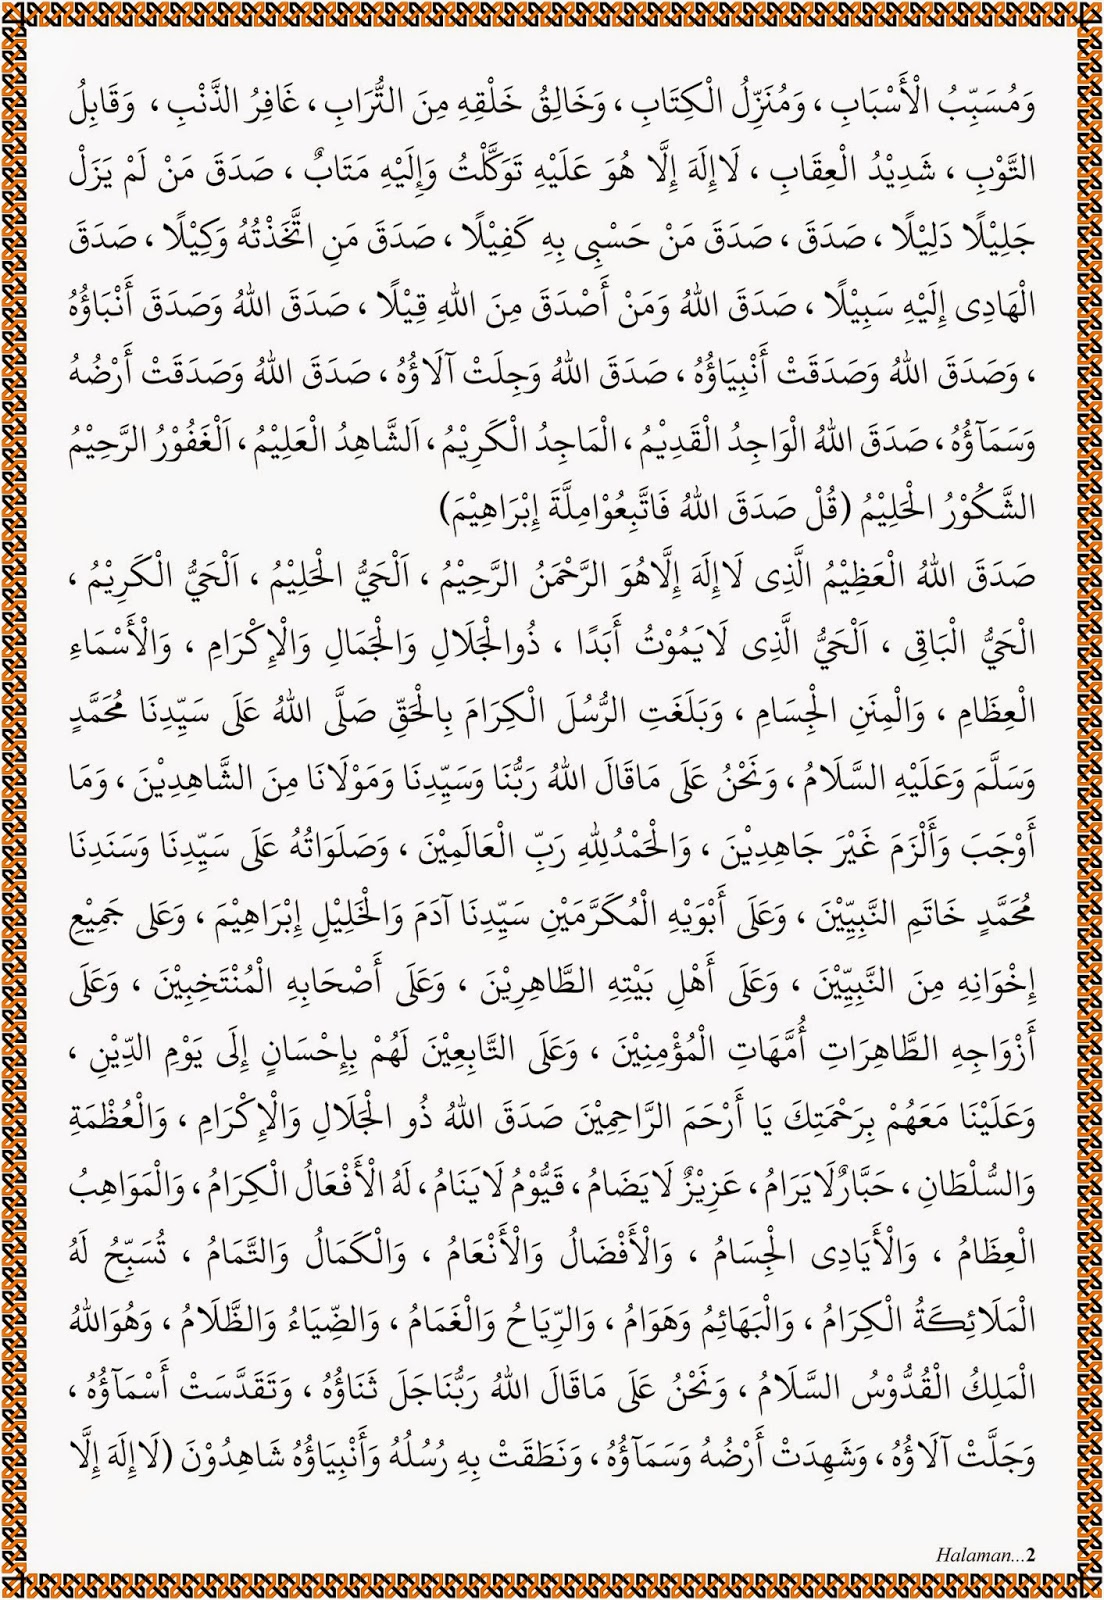 وَمُسَبِّبُ الْأَسْبَابِ ، وَمُنَزِّلُ الْكِتَابِ ، وَخَالِقُ خَلْقِهِ مِنَ التُّرَابِ ، غَافِرُ الذَّنْبِ ، وَقَابِلُ
التَّوْبِ ، شَدِيْدُ الْعِقَابِ ، لَاإِلَهَ إِلَّا هُوَ عَلَيْهِ تَوَكَّلْتُ وَإِلَيْهِ مَتَابٌ ، صَدَقَ مَنْ لَمْ يَزَلْ
جَلِيْلًا دَلِيْلًا ، صَدَقَ ، صَدَقَ مَنْ حَسْبِى بِهِ كَفِيْلًا ، صَدَقَ مَنِ اتَّخَذْتُهُ وَكِيْلًا ، صَدَقَ
الْهَادِى إِلَيْهِ سَبِيْلًا ، صَدَقَ اللهُ وَمَنْ أَصْدَقَ مِنَ اللهِ قِيْلًا ، صَدَقَ اللهُ وَصَدَقَ أَنْبَاؤُهُ
، وَصَدَقَ اللهُ وَصَدَقَتْ أَنْبِيَاؤُهُ ، صَدَقَ اللهُ وَجِلَتْ آلَاؤُهُ ، صَدَقَ اللهُ وَصَدَقَتْ أَرْضُهُ
وَسَمَآؤُهُ ، صَدَقَ اللهُ الْوَاجِدُ الْقَدِيْمُ ، الْمَاجِدُ الْكَرِيْمُ ، اَلشَّاهِدُ الْعَلِيْمُ ، اَلْغَفُوْرُ الرَّحِيْمُ
الشَّكُوْرُ الْحَلِيْمُ (قُلْ صَدَقَ اللهُ فَاتَّبِعُوْامِلَّةَ إِبْرَاهِيْمَ)
صَدَقَ اللهُ الْعَظِيْمُ الَّذِى لَاإِلَهَ إِلَّاهُوَ الرَّحْمَنُ الرَّحِيْمُ ، اَلْحَيُّ الْحَلِيْمُ ، اَلْحَيُّ الْكَرِيْمُ ،
الْحَيُّ الْبَاقِى ، اَلْحَيُّ الَّذِى لَايَمُوْتُ أَبَدًا ، ذُوالْجَلَالِ وَالْجَمَالِ وَالْإِكْرَامِ ، وَالْأَسْمَاءِ
الْعِظَامِ ، وَالْمِنَنِ الْجِسَامِ ، وَبَلَغَتِ الرُّسُلَ الْكِرَامَ بِالْحَقِّ صَلَّى اللهُ عَلَى سَيِّدِنَا مُحَمَّدٍ
وَسَلَّمَ وَعَلَيْهِ السَّلَامُ ، وَنَحْنُ عَلَى مَاقَالَ اللهُ رَبُّنَا وَسَيِّدِنَا وَمَوْلَانَا مِنَ الشَّاهِدِيْنَ ، وَمَا
أَوْجَبَ وَأَلْزَمَ غَيْرَ جَاهِدِيْنَ ، وَالْحَمْدُلِلّٰهِ رَبِّ الْعَالَمِيْنَ ، وَصَلَوَاتُهُ عَلَى سَيِّدِنَا وَسَنَدِنَا
مُحَمَّدٍ خَاتَمِ النَّبِيِّيْنَ ، وَعَلَى أَبْوَيْهِ الْمُكَرَّمَيْنِ سَيِّدِنَا آدَمَ وَالْخَلِيْلِ إِبْرَاهِيْمَ ، وَعَلى جَمِيْعِ
إِخْوَانِهِ مِنَ النَّبِيِّيْنَ ، وَعَلَى أَهْلِ بَيْتِهِ الطَّاهِرِيْنَ ، وَعَلَى أَصْحَابِهِ الْمُنْتَخِبِيْنَ ، وَعَلَى
أَزْوَاجِهِ الطَّاهِرَاتِ أُمَّهَاتِ الْمُؤْمِنِيْنَ ، وَعَلَى التَّابِعِيْنَ لَهُمْ بِإِحْسَانٍ إِلَى يَوْمِ الدِّيْنِ ،
وَعَلَيْنَا مَعَهُمْ بِرَحْمَتِكَ يَا أَرْحَمَ الرَّاحِمِيْنَ صَدَقَ اللهُ ذُو الْجَلَالِ وَالْإِكْرَامِ ، وَالْعُظْمَةِ
وَالسُّلْطَانِ ، حَبَّارٌلَايَرَامُ ، عَزِيْزٌ لَايَضَامُ ، قَيُّوْمُ لَايَنَامُ ، لَهُ الْأَفْعَالُ الْكِرَامُ ، وَالْمَوَاهِبُ
الْعِظَامُ ، وَالْأَيَادِى الْجِسَامُ ، وَالْأَفْضَالُ وَالْأَنْعَامُ ، وَالْكَمَالُ وَالتَّمَامُ ، تُسَبِّحُ لَهُ
الْمَلَائِكَةُ الْكِرَامُ ، وَالْبَهَائِمُ وَهَوَامُ ، وَالرِّيَاحُ وَالْغَمَامُ ، وَالضِّيَاءُ وَالظَّلَامُ ، وَهُوَاللهُ
الْمَلِكُ الْقُدُّوْسُ السَّلَامُ ، وَنَحْنُ عَلَى مَاقَالَ اللهُ رَبُّنَاجَلَ ثَنَاؤُهُ ، وَتَقَدَّسَتْ أَسْمَآؤُهُ ،
وَجَلَّتْ آلَاؤُهُ ، وَشَهِدَتْ أَرْضُهُ وَسَمَآؤُهُ ، وَنَطَقَتْ بِهِ رُسُلُهُ وَأَنْبِيَاؤُهُ شَاهِدُوْنَ (لَاإِلَهَ إِلَّا
Halaman...2